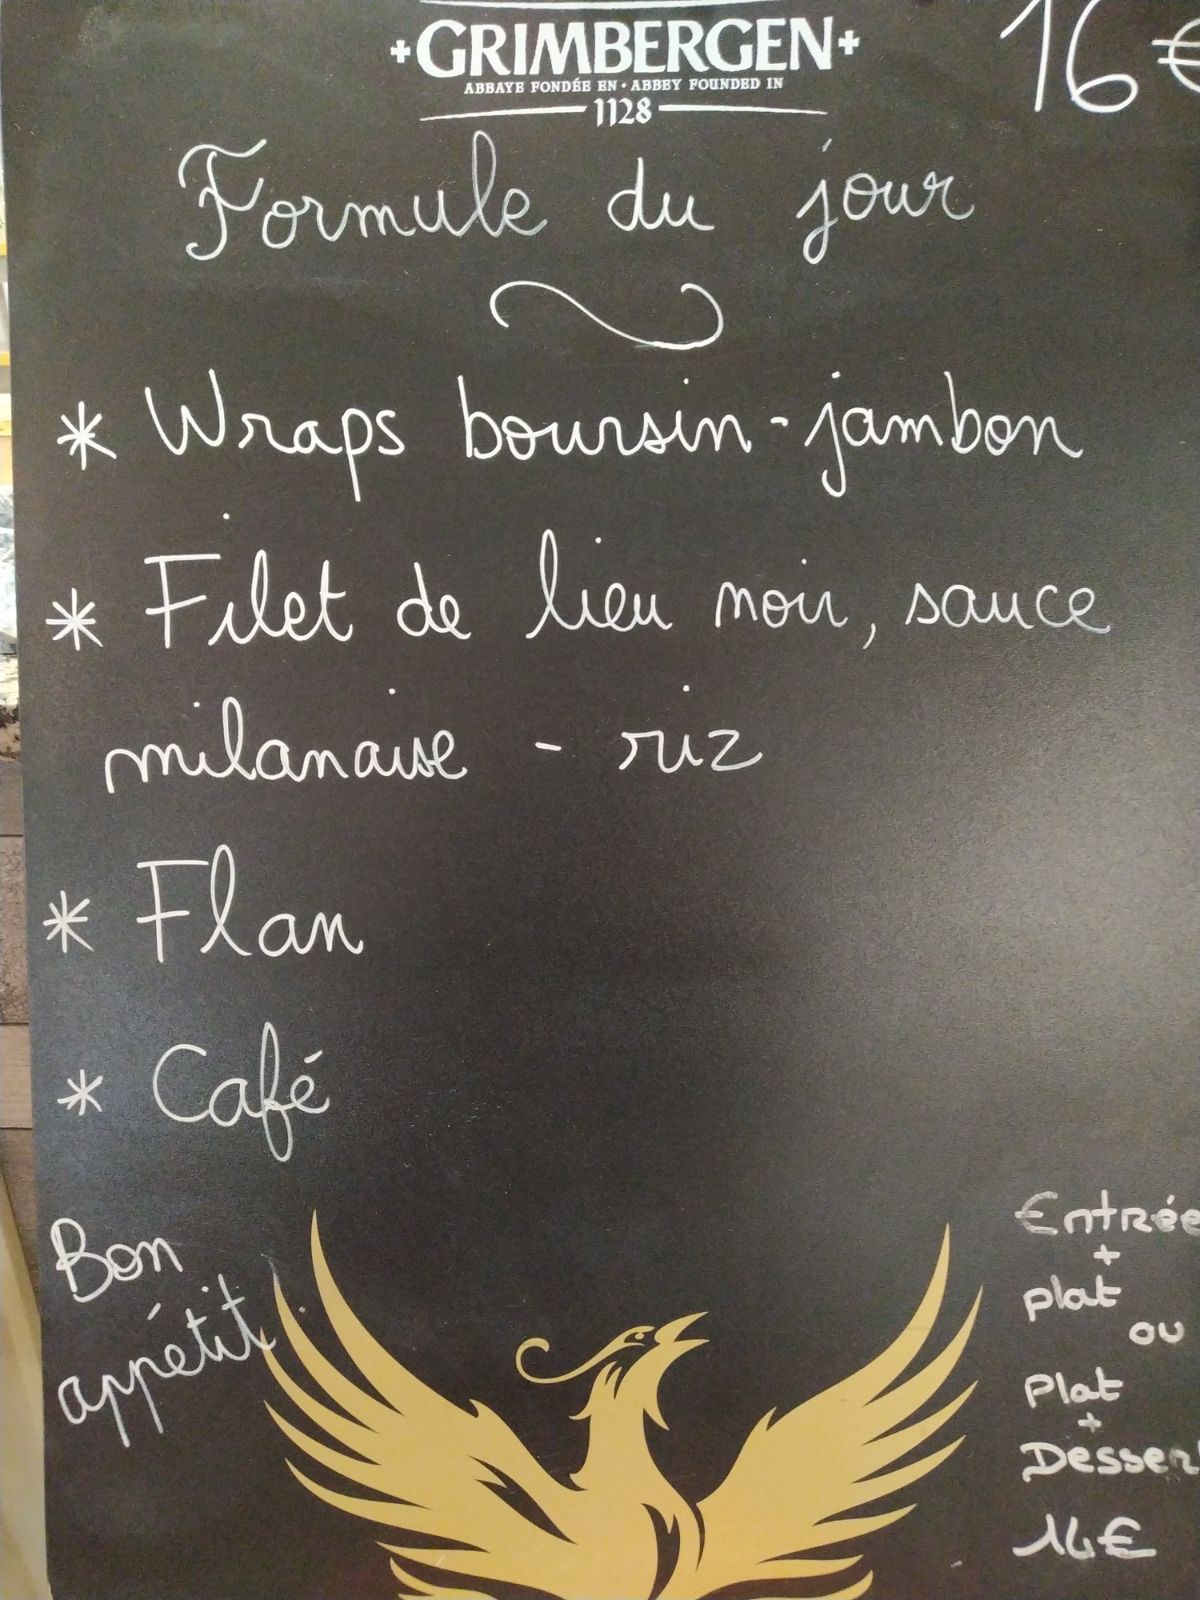 +GRIMBERGEN+
ABBAYE FONDÉE EN • ABBEY FOUNDED IN
1128
16€
Formule du jour
* Wraps boursin-jambon
* Filet de lieu noir, sauce
milanaise - riz
* Flan
* Café
Bon
appétit
Entrée
+
plat
ou
Plat
+
Dessert
14€